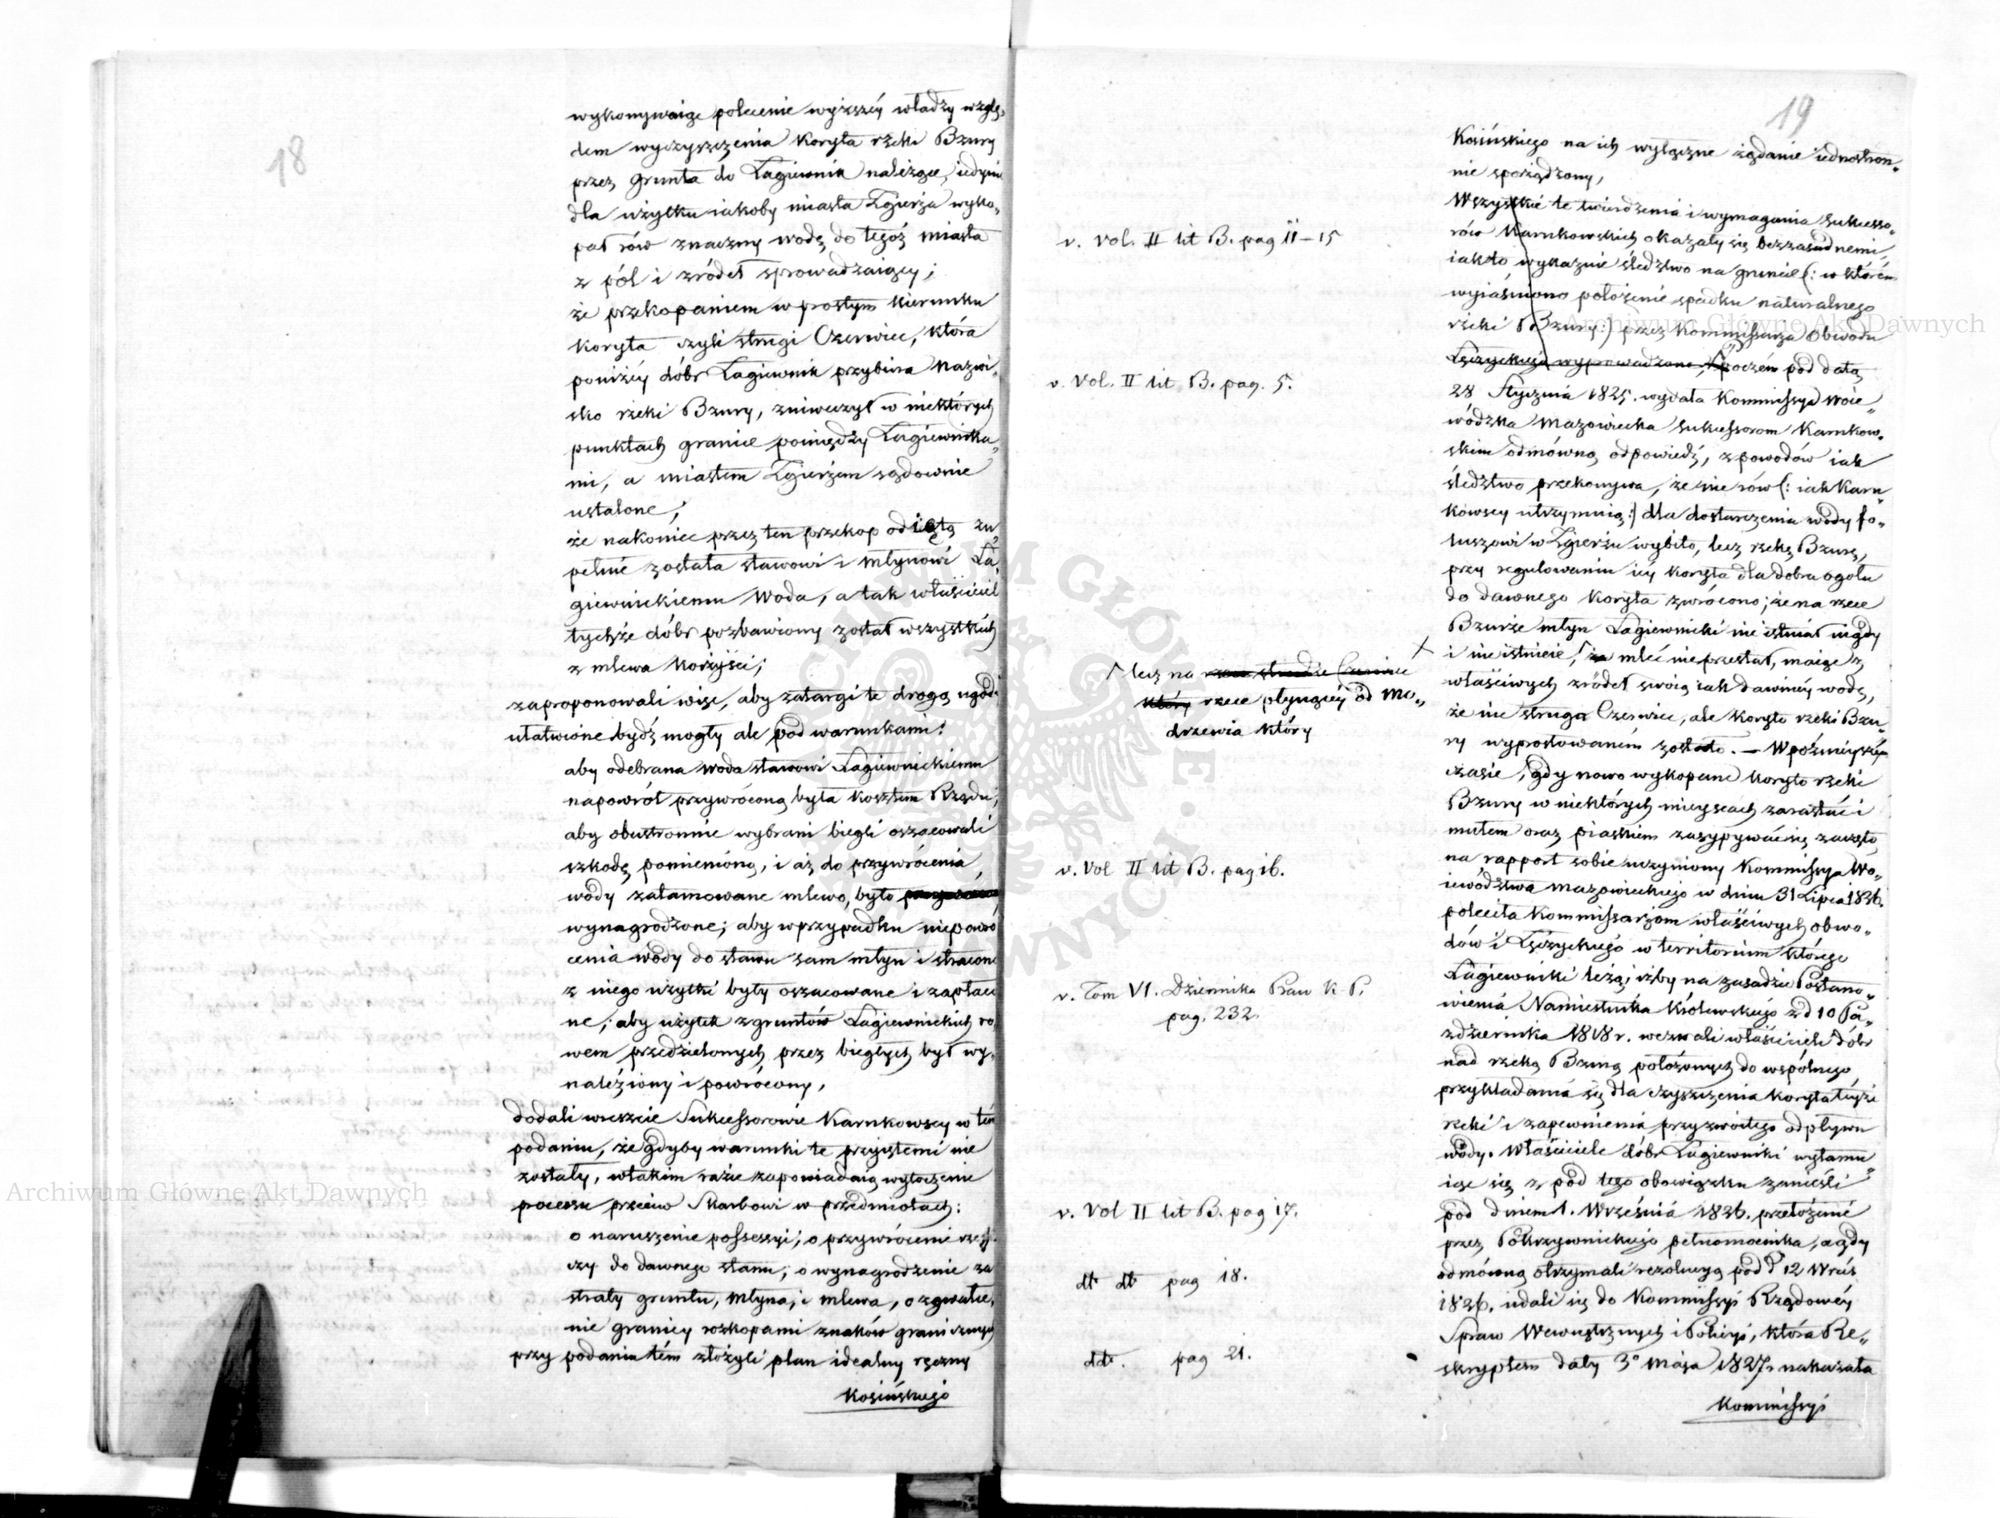 18
wykonywaiąc polecenie wyższéy władzy wzglę„
dem wyczyszczenia koryta rzeki Bzury
przez grunta do Łagiewnik należące, iedynie
dla użytku iakoby miasta Zgierza wyko„
pał rów znaczny wodę do tegoż miasta
z pól i zródeł sprowadzaiący;
że przekopaniem w prostym kierunku
koryta czyli strugi Czerwiec, która
poniżéy dóbr Łagiewnik przybiera nazwi„
sko rzeki Bzury, zniweczył w niektórych
punktach granice pomiędzy Łagiewnika„
mi, a miastem Zgierzem sądownie
ustalone;
że nakoniec przez ten przekop odiętą zu„
pełnie została stawowi i młynowi Ła„
giewnickiemu woda, a tak właściciel
tychże dóbr pozbawiony został wszystkich
z mlewa korzyści;
zaproponowali więc, aby zatargi te drogą ugody
ułatwione bydź mogły ale pod warunkami:
aby odebrana woda stawowi Łagiewnickiemu
napowrót przywróconą była kosztem Rządu;
aby obustronnie wybrani biegli oszacowali
szkodę pomienioną, i aż do przywrócenia
wody zatamowane mlewo, było
wynagrodzone; aby w przypadku niepowró
cenia wody do stawu sam młyn i stracone
z niego użytki były oszacowane i zapłaco
ne; aby użytek z gruntów Łagiewnickich ro„
wem przedzielonych przez biegłych był wy„
naleziony i powrócony,
dodali wreszcie Sukcessorowie Karnkowscy w tém
podaniu, że gdyby warunki te przyiętemi nie
zostały, w takim razie zapowiadaią wytoczenie
procesu przeciw Skarbowi w przedmiotach:
o naruszenie possessyi; o przywrócenie rze
czy do dawnego stanu; o wynagrodzenie za
straty gruntu, młyna, i mlewa, o zgwałce„
nie granicy rozkopami znaków granicznych
przy podaniu tém złożyli plan idealny ręczny
Kosińskiego
19
Kosińskiego na ich wyłączne żądanie iednostron„
nie sporządzony,
Wszystkie te twierdzenia i wymagania sukcesso„
rów Karnkowskich okazały się bezzasadnemi,
iak to wykaznie śledztwo na gruncie (: w którém
wyiaśniono położenie spadku naturalnego
rzeki Bzury:) przez Kommissarza Obwodu
Łęczyckiego wyprowadzone, poczém pod datą
28 Stycznia 1825. wydała Kommissya Woie„
wódzka Mazowiecka sukcessorom Karnkow„
skim odmówną odpowiedź, z powodów iak
śledztwo przekonywa, że nie rów (: iak Karn„
kowscy utrzymuią:) dla dostarczenia wody fo„
luszowi w Zgierzu wybito, lecz rzekę Bzurę,
przy regulowaniu iéy koryta dla dobra ogółu
do dawnego koryta zwrócono; że na rzece
Bzurze młyn Łagiewnicki nie istniał nigdy
i nie istnieie, mleć nie przestał, maiąc z
właściwych zródeł swoią iak dawniéy wodę,
że nie struga Czerwiec, ale koryto rzeki Bzu„
ry wyprostowaném zostało. — W późnieyszym
czasie, gdy nowo wykopane koryto rzeki
Bzury w niektórych mieyscach zarastać i
mułem oraz piaskiem zasypywać się zaczęło,
na rapport sobie uczyniony Kommissya Wo„
iewództwa Mazowieckiego w dniu 31 Lipca 1826.
poleciła Kommissarzom właściwych obwo„
dów i Łęczyckiego w territorium którego
Łagiewniki leżą; iżby na zasadzie Postano„
wienia Namiestnika Królewskiego z d 10 Pa„
zdziernika 1818 r. wezwali właścicieli dóbr
nad rzeką Bzurą położonych do wspólnego
przykładania się dla czyszczenia koryta teyże
rzeki i zapewnienia przyzwoitego odpływu
wody. Właściciele dóbr Łagiewniki wyłamu„
iąc się z pod tego obowiązku zanieśli
pod dniem 1. Września 1826. przełożenie
przez Pokrzywnickiego pełnomocnika, a gdy
odmówną otrzymali rezolucyą pod d 12 Wrześ
1826. udali się do Kommissyi Rządowéy
Spraw Wewnętrznych i Policyi, która Re„
skryptem daty 3º Maja 1827 r nakazała
Kommissyi
v. vol. II lit B. pag 11–15
v. vol. II lit B. pag. 5.
lecz na
rzece płynącéy od Mo„
drzewia który
v. Vol II lit B. pag 16.
v. Tom VI. Dziennika Praw K. P.
pag. 232.
v. Vol II lit B. pag 17.
dtt dtt pag 18.
dtt. pag 21.
Archiwum Główne Akt Dawnych
Archiwum Główne Akt Dawnych
ARCHIWUM GŁÓWNE AKT DAWNYCH